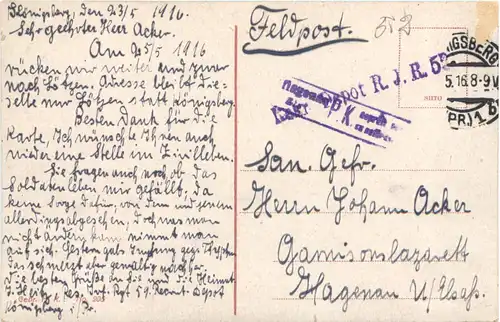 Königsberg, den 23/5 1916.
Sehr geehrter Herr Acker.
Am 25/5 1916
rücken wir weiter und zwar
nach Lötzen Adresse bleibt die-
selbe nur Lötzen statt Königsberg.
Besten Dank für die
Karte, Ich wünschte Ihnen auch
wieder eine Stelle im Zivilleben.
Sie fragen auch noch ob das
Soldatenleben mir gefällt. Da
keine Sorge dafür, von dem und jenem
allerdings abgesehen, doch was man
nicht ändern kann nimmt man
auf sich. Gestern gabs Impfung gegs Typhus
das schmerzt aber gewaltig nachher.
die besten Grüße an Sie und die Heimat
Rgt 59. Rekrut. Depot
Königsberg i/Pr.
Feldpost.
52
Depot R. J. R. 59
KÖNIGSBERG
5.16.8-9V
(PR.) 1 b
San. Gefr.
Herrn Johann Acker
Garnisonslazarett
Hagenau i/Elsaß.